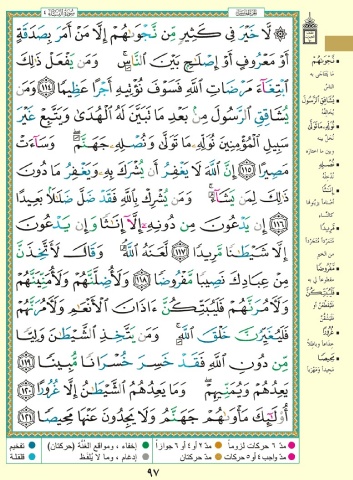 الجزء الخامس
سورة النساء ٤
لَّا خَيْرَ فِي كَثِيرٍ مِّن نَّجْوَىٰهُمْ إِلَّا مَنْ أَمَرَ بِصَدَقَةٍ
أَوْ مَعْرُوفٍ أَوْ إِصْلَٰحٍۭ بَيْنَ ٱلنَّاسِۚ وَمَن يَفْعَلْ ذَٰلِكَ
ٱبْتِغَآءَ مَرْضَاتِ ٱللَّهِ فَسَوْفَ نُؤْتِيهِ أَجْرًا عَظِيمًا ١١٤ وَمَن
يُشَاقِقِ ٱلرَّسُولَ مِنۢ بَعْدِ مَا تَبَيَّنَ لَهُ ٱلْهُدَىٰ وَيَتَّبِعْ غَيْرَ
سَبِيلِ ٱلْمُؤْمِنِينَ نُوَلِّهِۦ مَا تَوَلَّىٰ وَنُصْلِهِۦ جَهَنَّمَۖ وَسَآءَتْ
مَصِيرًا ١١٥ إِنَّ ٱللَّهَ لَا يَغْفِرُ أَن يُشْرَكَ بِهِۦ وَيَغْفِرُ مَا دُونَ
ذَٰلِكَ لِمَن يَشَآءُۚ وَمَن يُشْرِكْ بِٱللَّهِ فَقَدْ ضَلَّ ضَلَٰلًۢا بَعِيدًا
١١٦ إِن يَدْعُونَ مِن دُونِهِۦٓ إِلَّآ إِنَٰثًا وَإِن يَدْعُونَ
إِلَّا شَيْطَٰنًا مَّرِيدًا ١١٧ لَّعَنَهُ ٱللَّهُۘ وَقَالَ لَأَتَّخِذَنَّ
مِنْ عِبَادِكَ نَصِيبًا مَّفْرُوضًا ١١٨ وَلَأُضِلَّنَّهُمْ وَلَأُمَنِّيَنَّهُمْ
وَلَءَامُرَنَّهُمْ فَلَيُبَتِّكُنَّ ءَاذَانَ ٱلْأَنْعَٰمِ وَلَءَامُرَنَّهُمْ
فَلَيُغَيِّرُنَّ خَلْقَ ٱللَّهِۚ وَمَن يَتَّخِذِ ٱلشَّيْطَٰنَ وَلِيًّا
مِّن دُونِ ٱللَّهِ فَقَدْ خَسِرَ خُسْرَانًا مُّبِينًا ١١٩
يَعِدُهُمْ وَيُمَنِّيهِمْۖ وَمَا يَعِدُهُمُ ٱلشَّيْطَٰنُ إِلَّا غُرُورًا ١٢٠
أُو۟لَٰٓئِكَ مَأْوَىٰهُمْ جَهَنَّمُ وَلَا يَجِدُونَ عَنْهَا مَحِيصًا ١٢١
نَّجْوَىٰهُمْ
يُشَاقِقِ ٱلرَّسُولَ
نُوَلِّهِۦ مَا تَوَلَّىٰ
إِنَٰثًا
مَّرِيدًا
مَّفْرُوضًا
فَلَيُبَتِّكُنَّ
غُرُورًا
مَحِيصًا
مدّ ٦ حركات لزوماً مدّ ٢ أو ٤ أو ٦ جوازاً إخفاء، ومواقع الغُنَّة (حركتان) تفخيم
مدّ واجب ٤ أو ٥ حركات مدّ حركتان إدغام، وما لا يُلفَظ قلقلة
٩٧